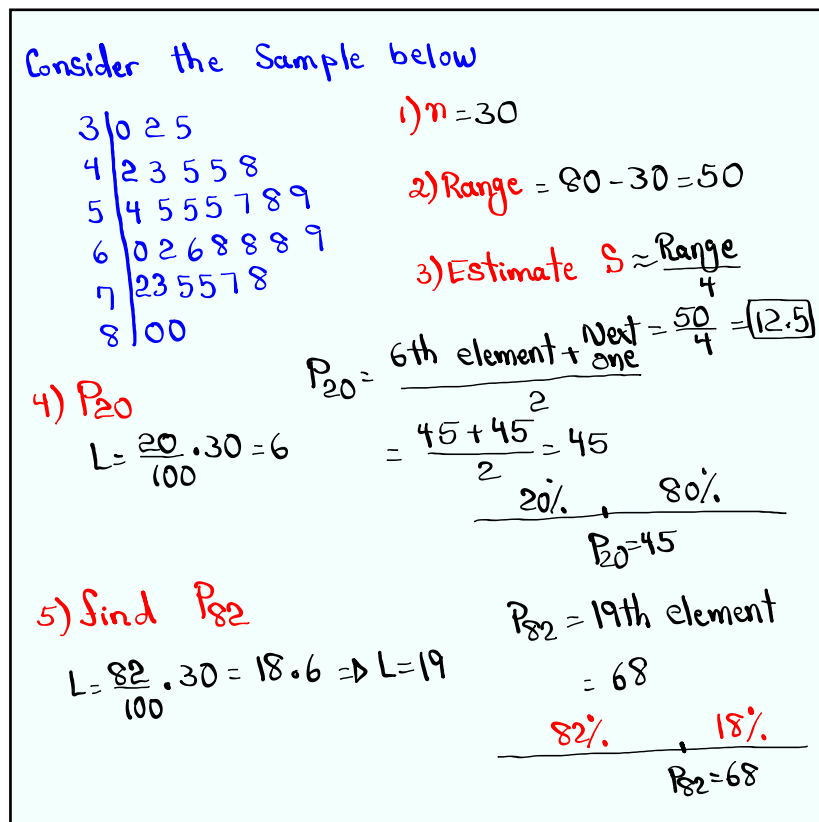 Consider the Sample below
3|0 2 5
4|2 3 5 5 8
5|4 5 5 5 7 8 9
6|0 2 6 8 8 8 9
7|2 3 5 5 7 8
8|0 0
1) n = 30
2) Range = 80 - 30 = 50
3) Estimate S ≈ Range/4
= 50/4 = 12.5
4) P20
L = 20/100 . 30 = 6
P20 = (6th element + Next one)/2
= (45 + 45)/2 = 45
20% 80%
P20 = 45
5) find P82
L = 82/100 . 30 = 18.6 ⇒ L = 19
P82 = 19th element
= 68
82% 18%
P82 = 68